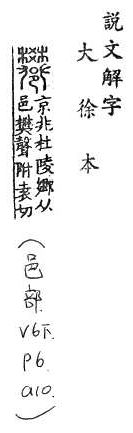 説文解字
大徐本
京兆杜陵鄉从
邑樊聲附袁切
(邑部. V6下. P6. a10.)